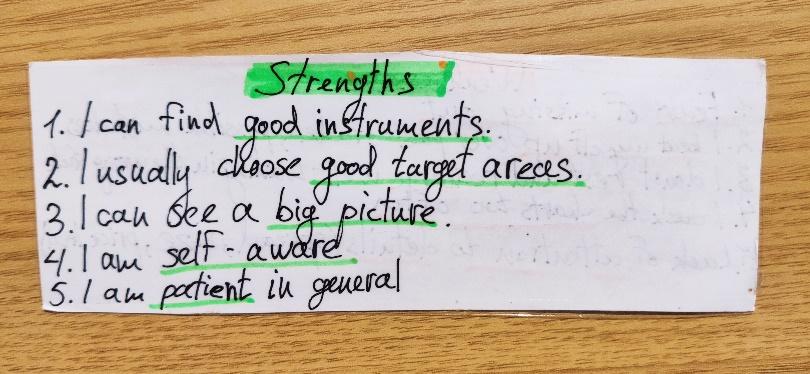 Strengths
1. I can find good instruments.
2. I usually choose good target areas.
3. I can see a big picture.
4. I am self-aware
5. I am patient in general